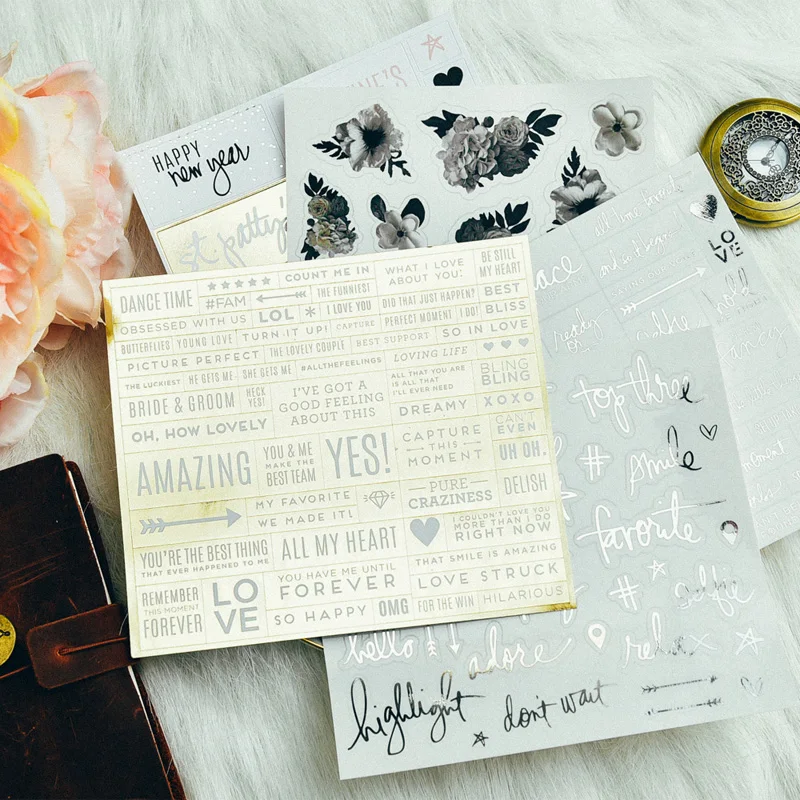 HAPPY
new year
st. patty's
DANCE TIME
COUNT ME IN
#FAM
THE FUNNIEST
WHAT I LOVE
ABOUT YOU:
BE STILL
MY HEART
OBSESSED WITH US
LOL
*
I LOVE YOU
DID THAT JUST HAPPEN?
BEST
BUTTERFLIES
YOUNG LOVE
TURN IT UP!
CAPTURE
PERFECT MOMENT
I DO!
BLISS
PICTURE PERFECT
THE LOVELY COUPLE
BEST SUPPORT
SO IN LOVE
THE LUCKIEST
HE GETS ME - SHE GETS ME
#ALLTHEFEELINGS
LOVING LIFE
BRIDE & GROOM
HECK
YES!
I'VE GOT A
GOOD FEELING
ABOUT THIS
ALL THAT YOU ARE
IS ALL THAT
I'LL EVER NEED
BLING
BLING
OH, HOW LOVELY
DREAMY
XOXO
AMAZING
YOU & ME
MAKE THE
BEST TEAM
YES!
CAPTURE
THIS
MOMENT
CAN'T
EVEN
UH OH.
MY FAVORITE
WE MADE IT!
PURE
CRAZINESS
DELISH
YOU'RE THE BEST THING
THAT EVER HAPPENED TO ME
ALL MY HEART
I COULDN'T LOVE YOU
MORE THAN I DO
RIGHT NOW
REMEMBER
THIS MOMENT
FOREVER
LO
VE
YOU HAVE ME UNTIL
FOREVER
THAT SMILE IS AMAZING
LOVE STRUCK
SO HAPPY
OMG
FOR THE WIN
HILARIOUS
all time favorite
and so it begins
LO
VE
ready
top three
#
smile
favorite
#
selfie
hello
adore
relax
highlight
don't wait
moment